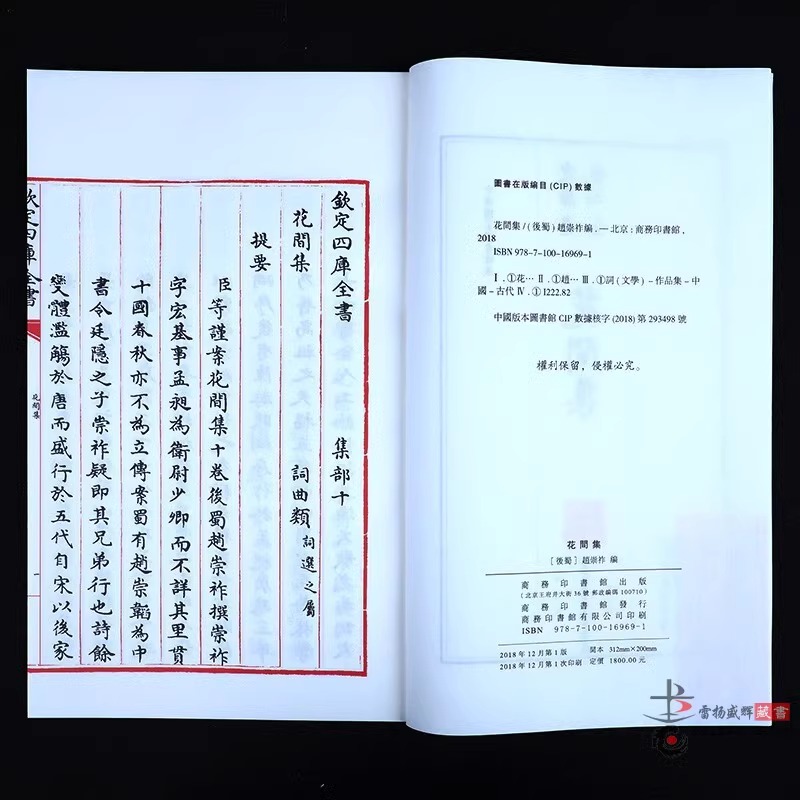 欽定四庫全書　集部十
花間集　詞曲類詞選之屬
提要
臣等謹案花間集十卷後蜀趙崇祚撰崇祚
字宏基事孟昶為衛尉少卿而不詳其里貫
十國春秋亦不為立傳案蜀有趙崇韜為中
書令廷隱之子崇祚疑即其兄弟行也詩餘
變體濫觴於唐而盛行於五代自宋以後家
欽定四庫全書
花間集
一
圖書在版編目(CIP)數據
花間集/(後蜀)趙崇祚編.—北京:商務印書館,
2018
ISBN 978-7-100-16969-1
Ⅰ.①花… Ⅱ.①趙… Ⅲ.①詞(文學)-作品集-中
國-古代 Ⅳ.①I222.82
中國版本圖書館CIP數據核字(2018)第293498號
權利保留,侵權必究。
花間集
[後蜀]趙崇祚 編
商務印書館出版
(北京王府井大街36號 郵政編碼100710)
商務印書館發行
商務印書館有限公司印刷
ISBN 978-7-100-16969-1
2018年12月第1版　開本 312mm×200mm
2018年12月第1次印刷　定價 1800.00元
雷揚盛輝藏書